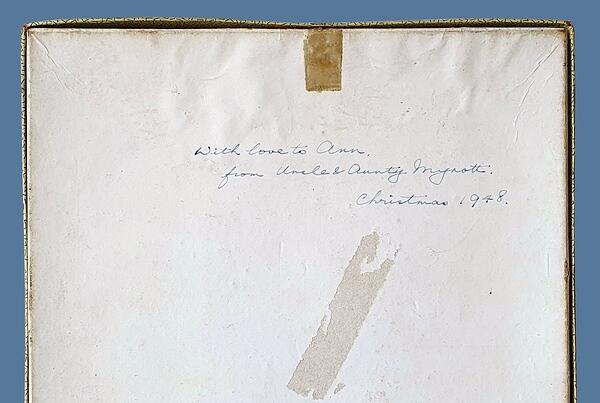 With love to Ann.
from Uncle & Aunty Mynott.
Christmas 1948.